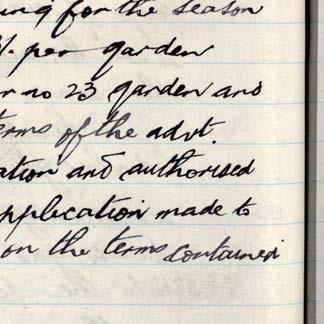 ing for the season
/. per garden
r no 23 garden and
terms of the advt.
ation and authorised
pplication made to
on the terms contained